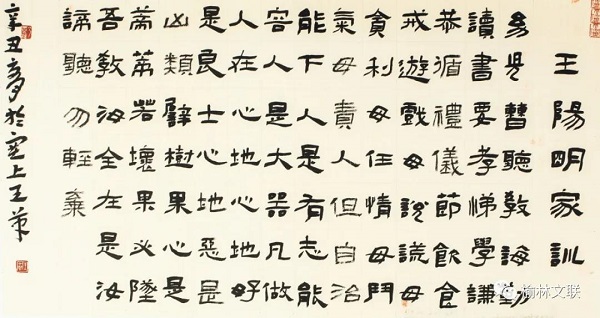 王陽明家訓
幼兒曹聽教誨勤
讀書要孝悌學謙
恭循禮儀節飲食
戒遊戲毋說謊毋
貪利毋任情毋鬥
氣毋責人但自治
能下人是有志能
容人是大器凡做
人在心地心地好
是良士心地惡是
凶類譬樹果心是
蒂蒂若壞果必墜
吾教汝全在是汝
諦聽勿輕棄
辛丑 於塞上王
榆林文联